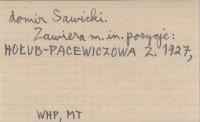 domir Sawicki.
Zawiera m.in. pozycje:
HOŁUB-PACEWICZOWA Z. 1927,
WHP, MT